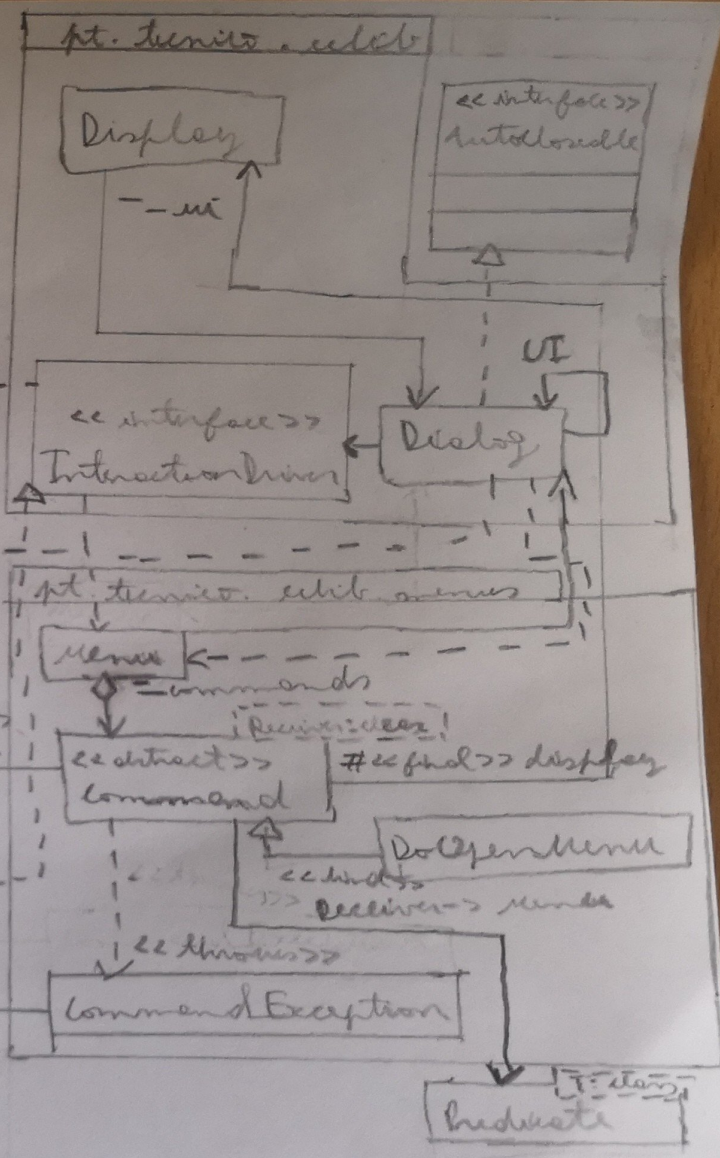 pt. tecnico. uilib
Display
<<interface>>
AutoCloseable
- _ui
UI
<<interface>>
InteractionDriver
Dialog
pt. tecnico. uilib. menus
Menu
- _commands
Receiver: class
<<abstract>>
Command
# <<final>> display
DoOpenMenu
<<bind>>
Receiver -> Menu
<<throws>>
CommandException
T: class
Predicate